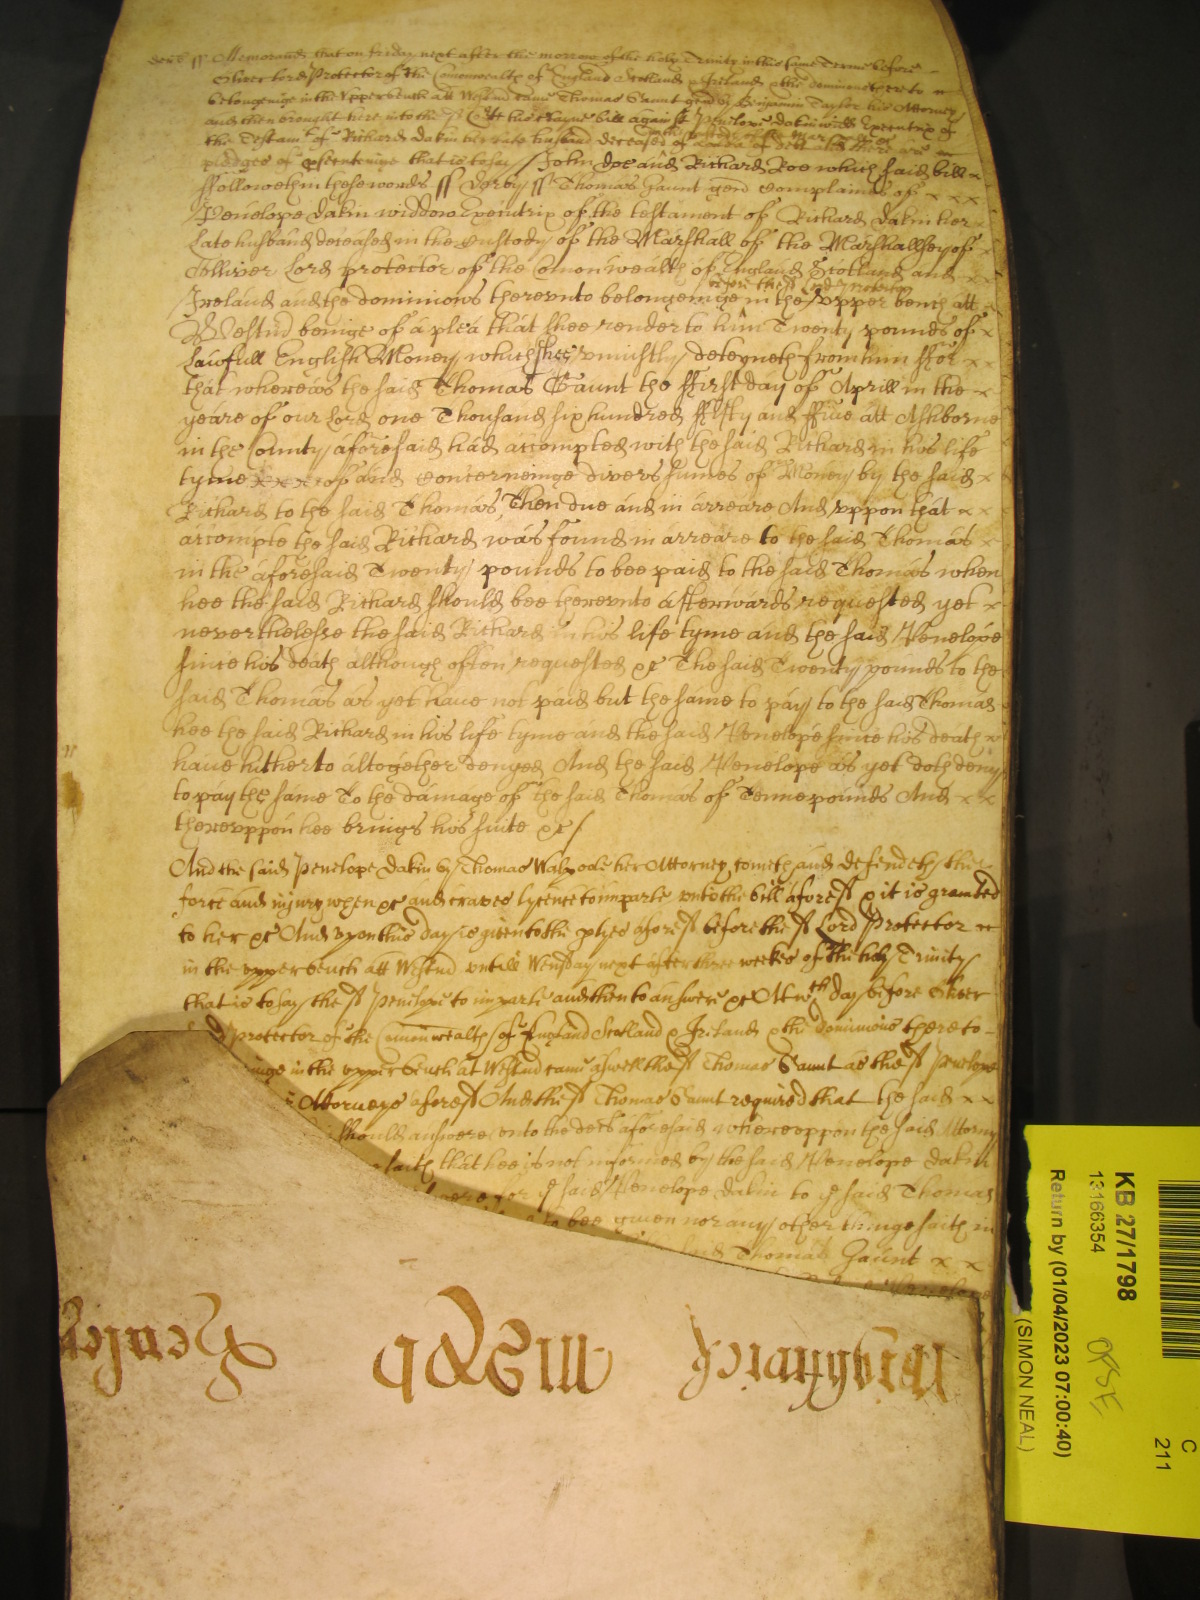 derb ss Memorand that on friday next after the morrow of the holy Trinity in this same Terme before
Oliver Lord Protector of the Comonwealth of England Scotland & Ireland & the dominions thereto
belonginge in the Upper bench att Westmr came Thomas Gaunt gent by Benjamin Taylor his Attorney
and then brought here into the sd Court his certayne bill against Penelope dakin widd Executrix of
the Testamt of Richard dakin her late husband deceased in the custody of the Marshall &c of a plea of debt and there are
pledges of prosecutinge that is to say John doe and Richard Roe which said bill x
ffolloweth in these words ss derby ss Thomas Gaunt gent complaines of x x x x
Penelope dakin widdow Executrix of the testament of Richard dakin her
late husband deceased in the custody of the Marshall of the Marshallsey of x
Olliver Lord protector of the Comonwealth of England Scotland and x x
before the sd Lord Protector
Ireland and the dominions therevnto belongeinge in the vpper bench att x
Westmr beinge of a plea that shee render to him Twenty pounds of x
Lawfull English Money which shee vniustly deteyneth from him ffor x x
that whereas the said Thomas Gaunt the ffirst day of Aprill in the x
yeare of our Lord one Thousand six hundred ffifty and ffiue att Ashborne
in the County aforesaid had accompted with the said Richard in his life
tyme x x x of and concerneinge divers sumes of Money by the said x
Richard to the said Thomas, Then due and in arreare And vppon that x x
accompte the said Richard was found in arreare to the said Thomas x
in the aforesaid Twenty pounds to bee paid to the said Thomas when
hee the said Richard should bee therevnto afterwards requested yet x
neverthelesse the said Richard in his life tyme and the said Penelope
since his death although often requested &c The said Twenty pounds to the
said Thomas as yet haue not paid but the same to pay to the said Thomas
hee the said Richard in his life tyme and the said Penelope since his death x
haue hitherto altogether denyed And the said Penelope as yet doth deny
to pay the same To the damage of the said Thomas of Tenne pounds And x x
therevppon hee brings his suite &c /
And the said Penelope dakin by Thomas Walpoole her Attorney cometh and defendeth the
force and iniury when &c and craves lycence to imparle vnto the bill aforesd & it is graunted
to her &c And vpon this day is given to the ptyes aforesd before the sd Lord Protector
in the vpper bench att Westmr vntill Wensday next after three weekes of the holy Trinity
that is to say the sd Penelope to imparle and then to answere &c At wch day before Oliver
Lord Protector of the Comonwealth of England Scotland & Ireland & the dominions thereto
inge in the vpper bench at Westmr came aswell the sd Thomas Gaunt as the sd Penelope
Attorneys aforesd And the sd Thomas Gaunt required that the said x x
should answere vnto the debt aforesaid wherevppon the said Attorny
saith that hee is not informed by the said Penelope dakin
for ye said Penelope dakin to ye said Thomas
to bee given nor any other thinge saith in
Thomas Gaunt x x
KB 27/1798
13166354
Return by (01/04/2023 07:00:40)
(SIMON NEAL)
C
211